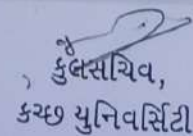 કુલસચિવ,
કચ્છ યુનિવર્સિટી